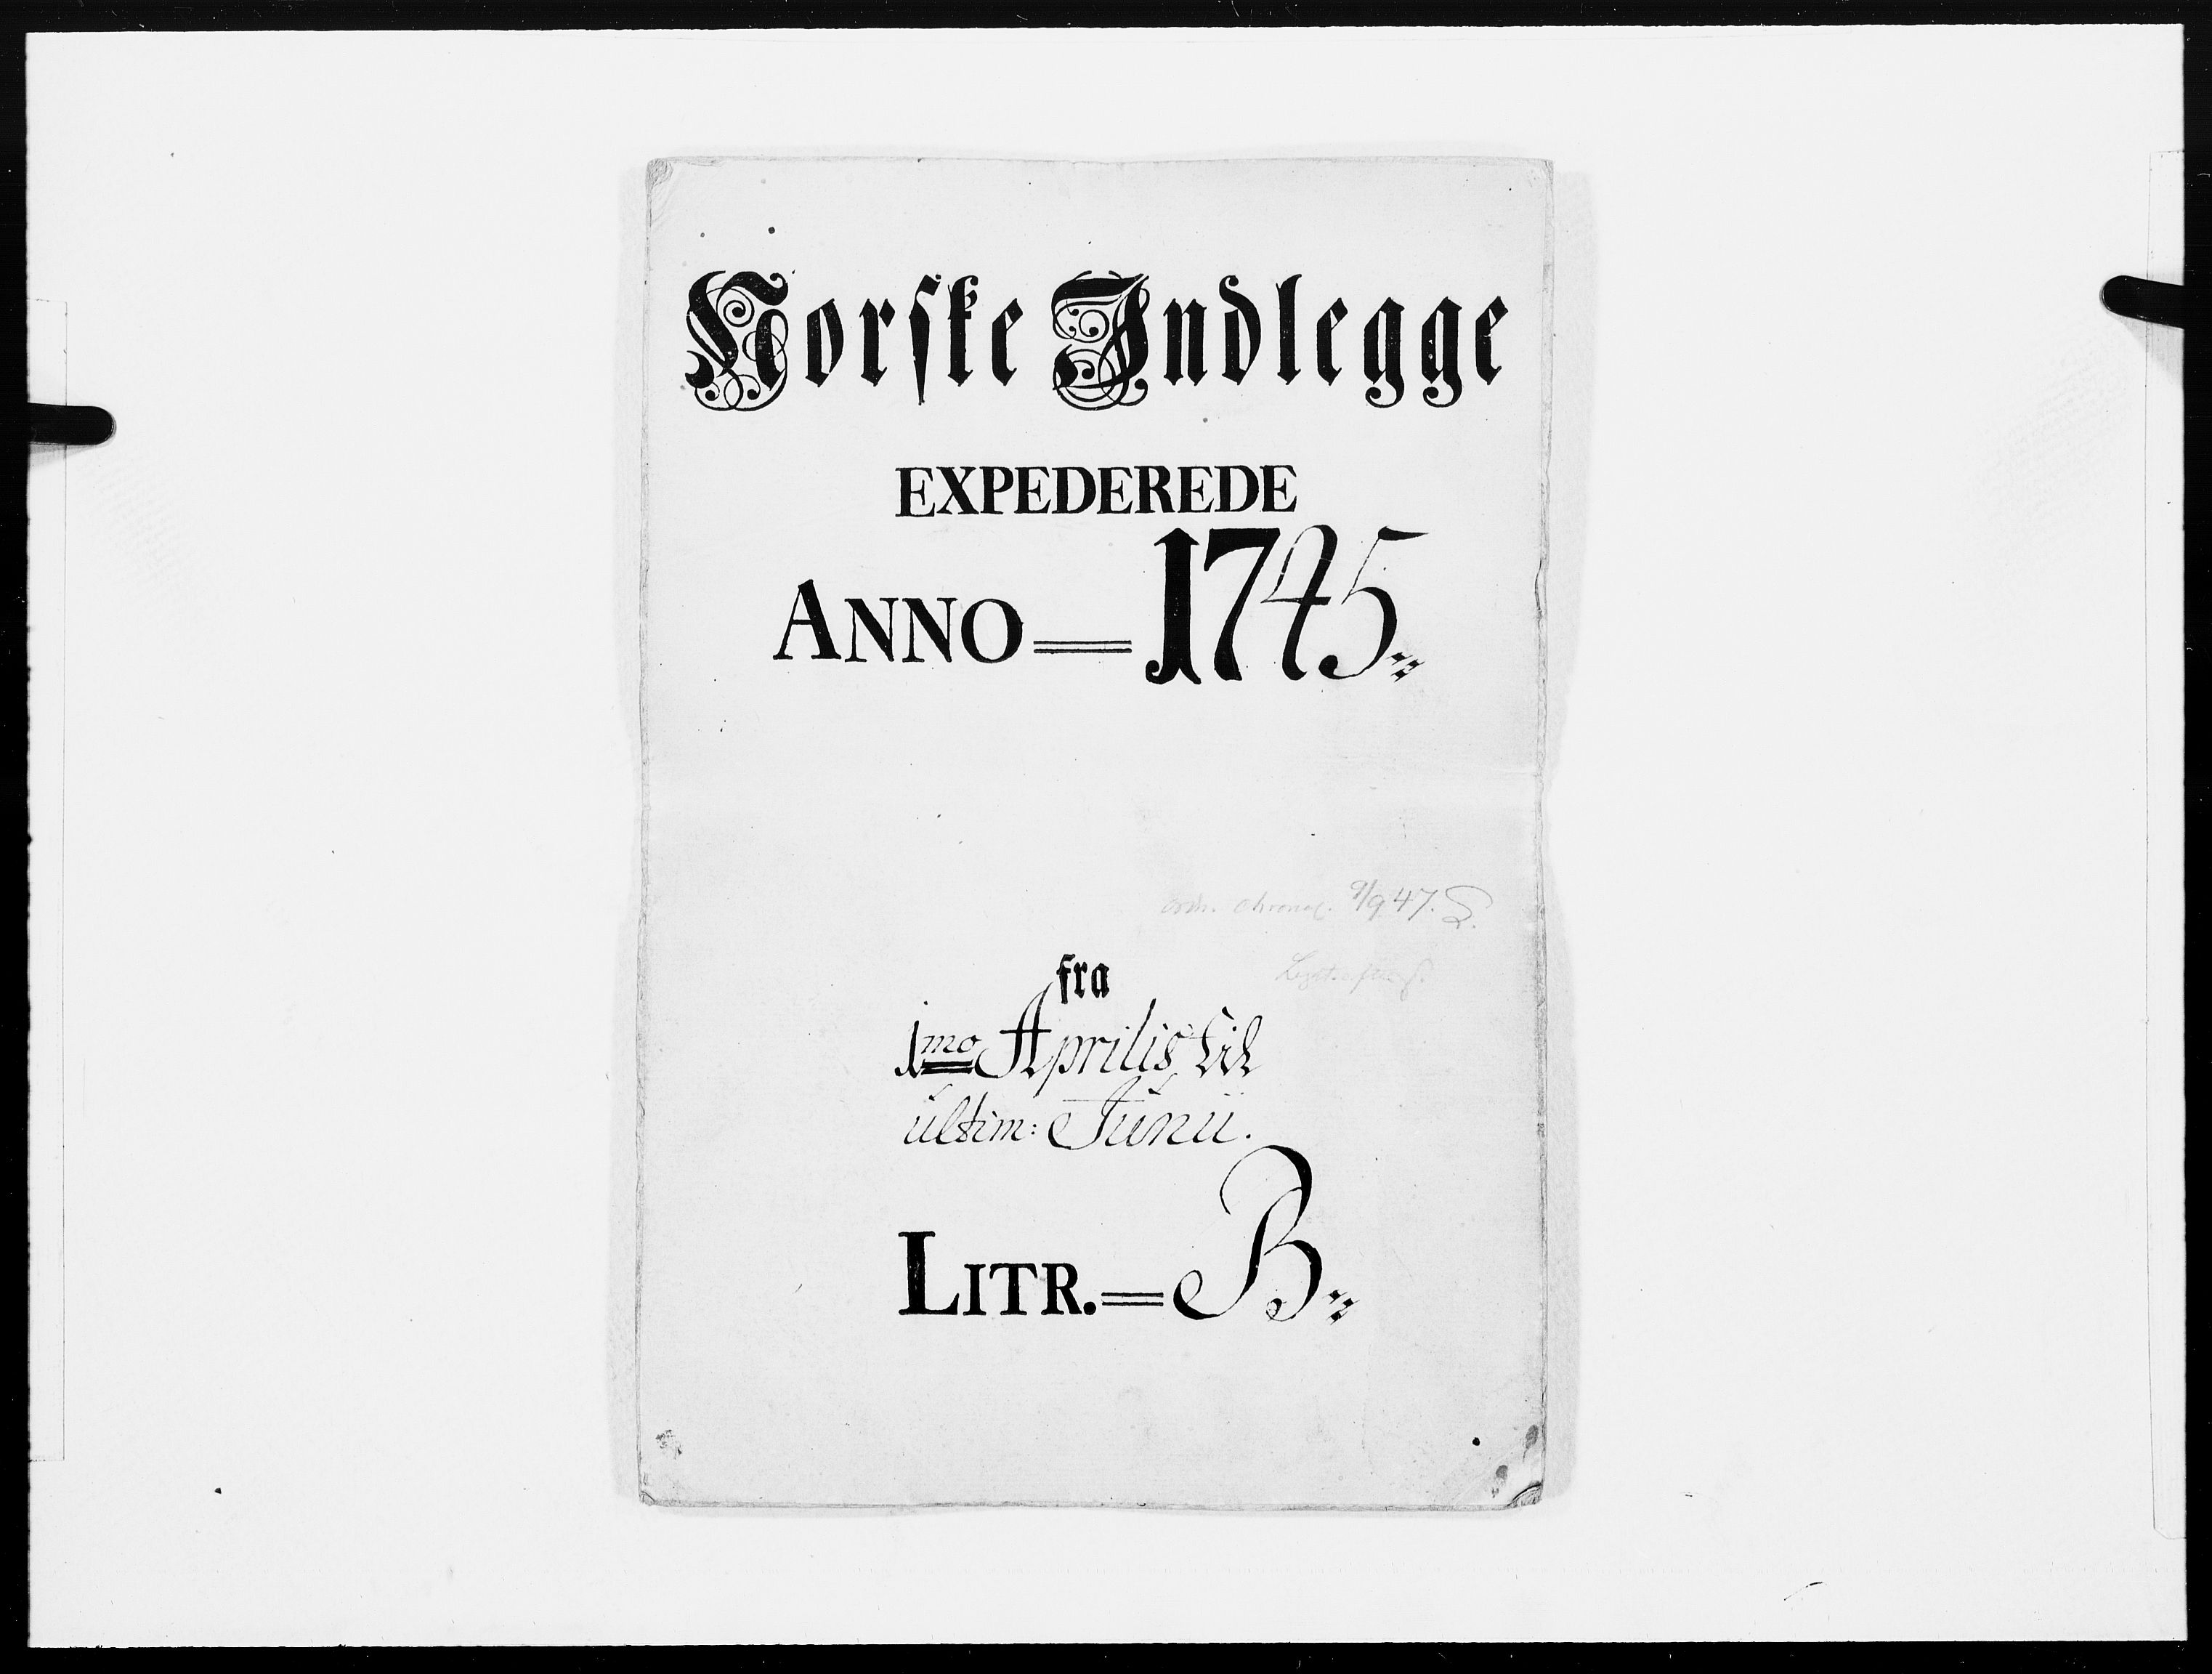 Norske Indlegge
EXPEDEREDE
ANNO = 1745
ordn. chronol. 9/9 47. S.
fra
1mo Aprilis til
ultim: Junii.
LITR. = B